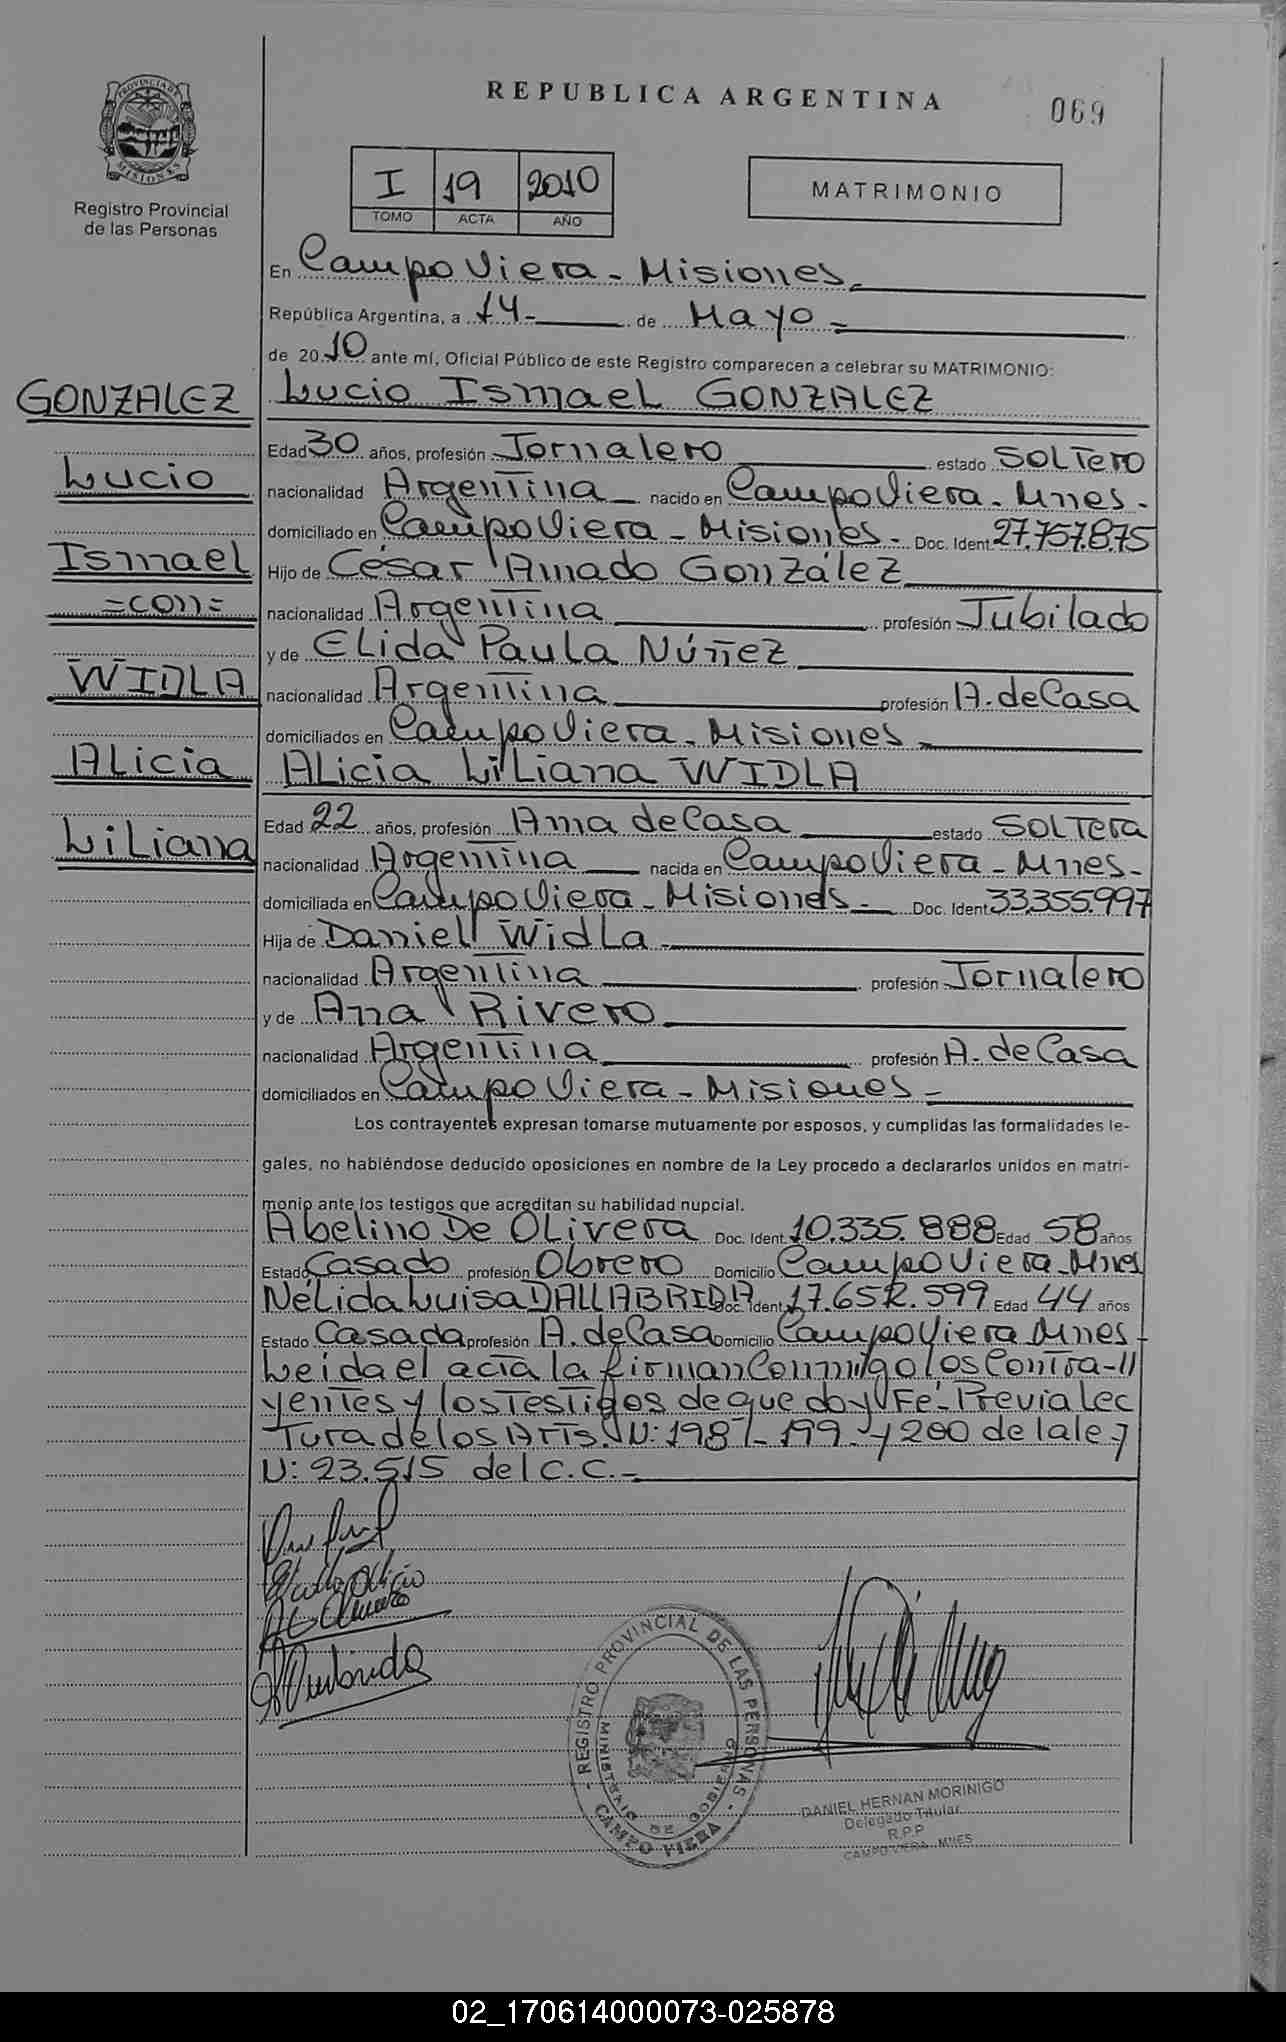 REPUBLICA ARGENTINA
069
PROVINCIA DE MISIONES
Registro Provincial
de las Personas
I 19 2010
TOMO ACTA AÑO
MATRIMONIO
En Campo Viera - Misiones
República Argentina, a 14 - de Mayo
de 2010 ante mí, Oficial Público de este Registro comparecen a celebrar su MATRIMONIO:
GONZALEZ
Lucio
Ismael
=con=
WIDLA
Alicia
Liliana
Lucio Ismael GONZALEZ
Edad 30 años, profesión Jornalero estado Soltero
nacionalidad Argentina nacido en Campo Viera - Mnes -
domiciliado en Campo Viera - Misiones - Doc. Ident. 27.757.875
Hijo de César Amado González
nacionalidad Argentina profesión Jubilado
y de Elida Paula Núñez
nacionalidad Argentina profesión A. de Casa
domiciliados en Campo Viera - Misiones
Alicia Liliana WIDLA
Edad 22 años, profesión Ama de Casa estado Soltera
nacionalidad Argentina nacida en Campo Viera - Mnes -
domiciliada en Campo Viera - Misiones - Doc. Ident 33.355.997
Hija de Daniel Widla
nacionalidad Argentina profesión Jornalero
y de Ana Rivero
nacionalidad Argentina profesión A. de Casa
domiciliados en Campo Viera - Misiones -
Los contrayentes expresan tomarse mutuamente por esposos, y cumplidas las formalidades le-
gales, no habiéndose deducido oposiciones en nombre de la Ley procedo a declararlos unidos en matri-
monio ante los testigos que acreditan su habilidad nupcial.
Abelino De Olivera Doc. Ident. 10.335.888 Edad 58 años
Estado Casado profesión Obrero Domicilio Campo Viera - Mnes
Nélida Luisa DALLABRIDA Doc. Ident. 17.652.599 Edad 44 años
Estado Casada profesión A. de Casa Domicilio Campo Viera Mnes -
Leida el acta la firman conmigo los contra-//
yentes y los testigos de que doy Fé - Previa lec
tura de los Arts. N: 198 - 199 - y 200 de la ley
N: 23.515 del C.C. -
REGISTRO PROVINCIAL DE LAS PERSONAS
MINISTERIO DE GOBIERNO
CAMPO VIERA
DANIEL HERNAN MORINIGO
Delegado Titular
R.P.P
CAMPO VIERA - MNES
02_170614000073-025878